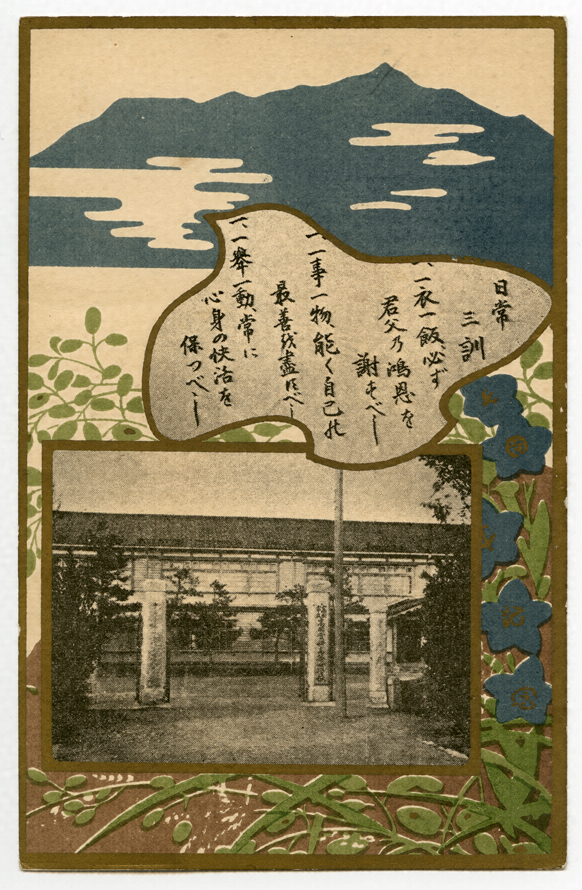 日常
三訓
一、一衣一飯必ず
君父乃鴻恩を
謝すべし
一、一事一物、能く自己の
最善を盡すべし
一、一擧一動、常に
心身の快活を
保つべし